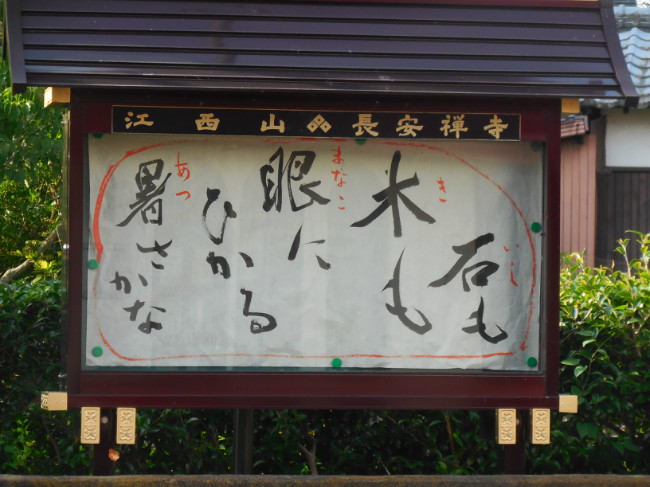 江西山 長安禅寺
いし
石も
き
木も
まなこ
眼に
ひかる
あつ
暑さかな